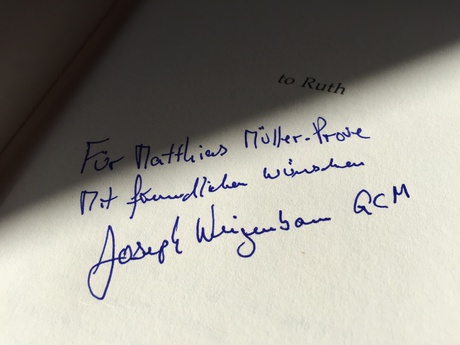 to Ruth
Für Matthias Müller-Prove
Mit freundlichen Wünschen
Joseph Weizenbaum GCM